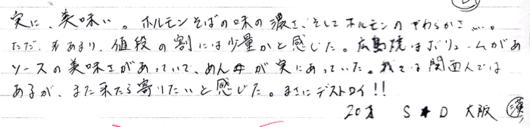 実に、美味い。ホルモンそばの味の濃さ、そしてホルモンのやわらかさ…。
ただ、あまり、値段の割には少量かと感じた。広島焼はボリュームがあり
ソースの美味さがあっていて、めんが実にあっていた。我々は関西人では
あるが、また来たら寄りたいと感じた。まさにデストロイ!!
20才 S★D 大阪